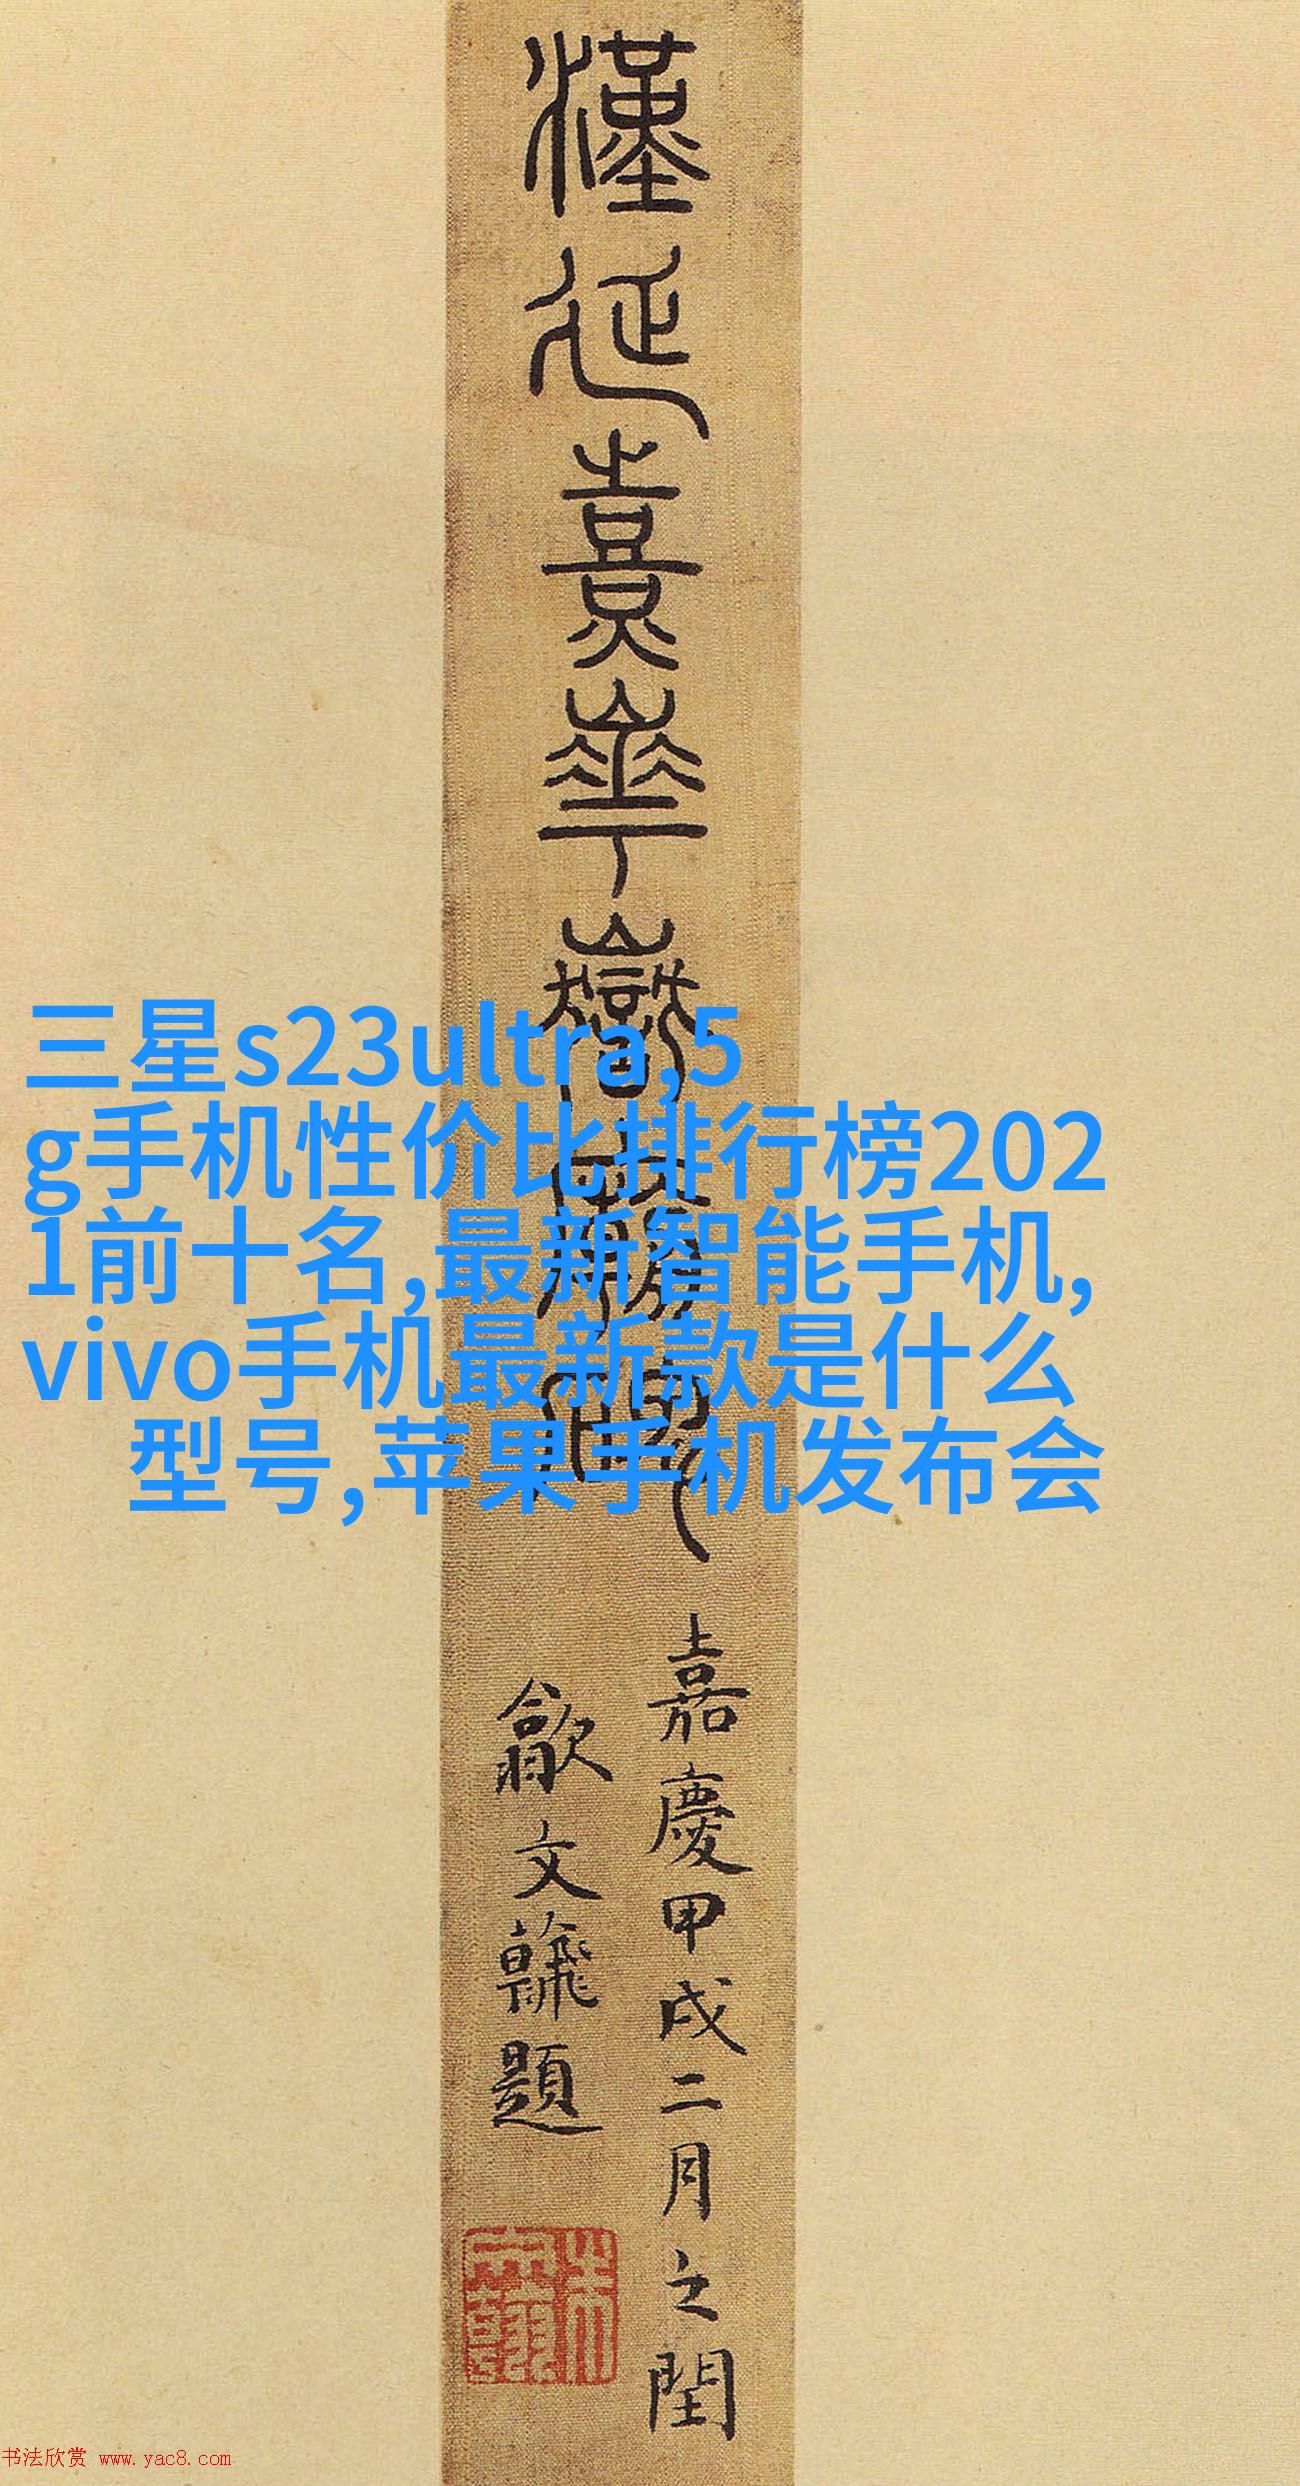 漢延熹華嶽廟碑
嘉慶甲戌二月之閏
歙文𩙺題
三星s23ultra,5
g手机性价比排行榜202
1前十名,最新智能手机,
vivo手机最新款是什么
型号,苹果手机发布会
书法欣赏 www.yac8.com